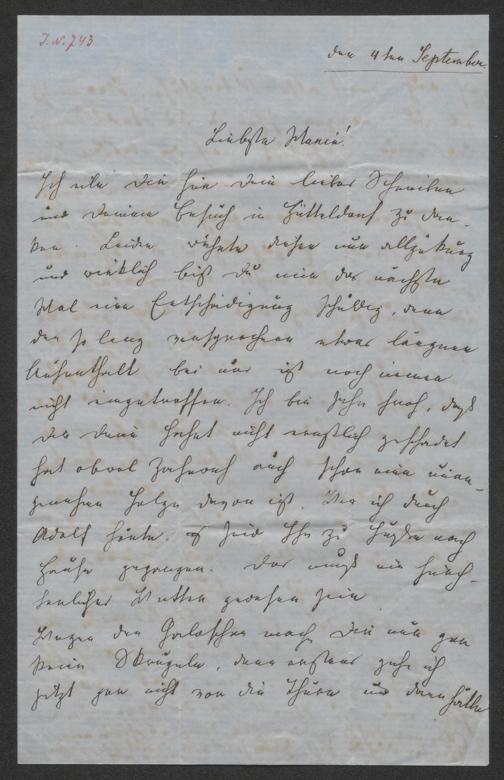 J. N. 743
den 4ten September
Liebste Marie!
Ich eile Dir für Dein liebes Schreiben
und Deinen Besuch in Hütteldorf zu dan-
ken. Leider währte dieser nur allzukurz
und wirklich bist Du mir das nächste
Mal eine Entschädigung schuldig, denn
der so lang versprochene etwas längere
Aufenthalt bei uns ist noch immer
nicht eingetroffen. Ich bin sehr froh, daß
Dir Deine Fahrt nicht ernstlich geschadet
hat obwol Zahnweh auch schon eine unan-
genehme Folge davon ist. Wie ich durch
Adolf hörte, seid Ihr zu Fuße nach
Hause gegangen. Das muß ein fürch-
terliches Wetter gewesen sein.
Wegen der Galoschen mach Dir nur gar
keine Skrupeln, denn erstens gehe ich
jetzt gar nicht vor die Thüre und dann hätte